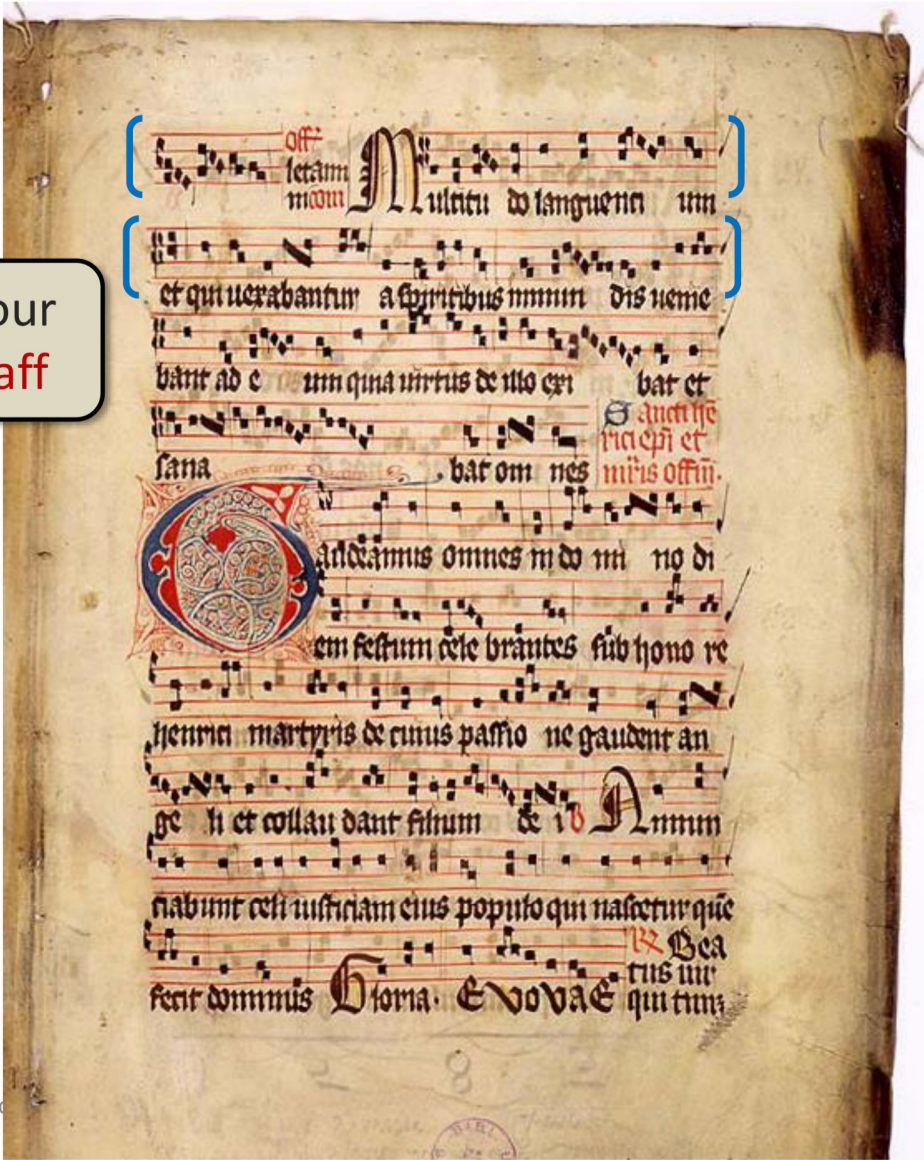 our
aff
Off
letamı
mcom
Multitu do languenti um
et qui uexabantur a spiritibus inmun dis uenie
bant ad e um quia uirtus de illo exi bat et
sana bat om nes
Sancti hē
rici ep̄i et
mr̄is offm̄.
Gaudeamus omnes in do mi no di
em festum cele brantes sub hono re
henrici martyris de cuius passio ne gaudent an
ge li et collau dant filium de i V Annun
ciabunt celi iusticiam eius populo qui nascetur quē
fecit dominus Gloria. E VOVAE
Bea
tus uir
qui tim